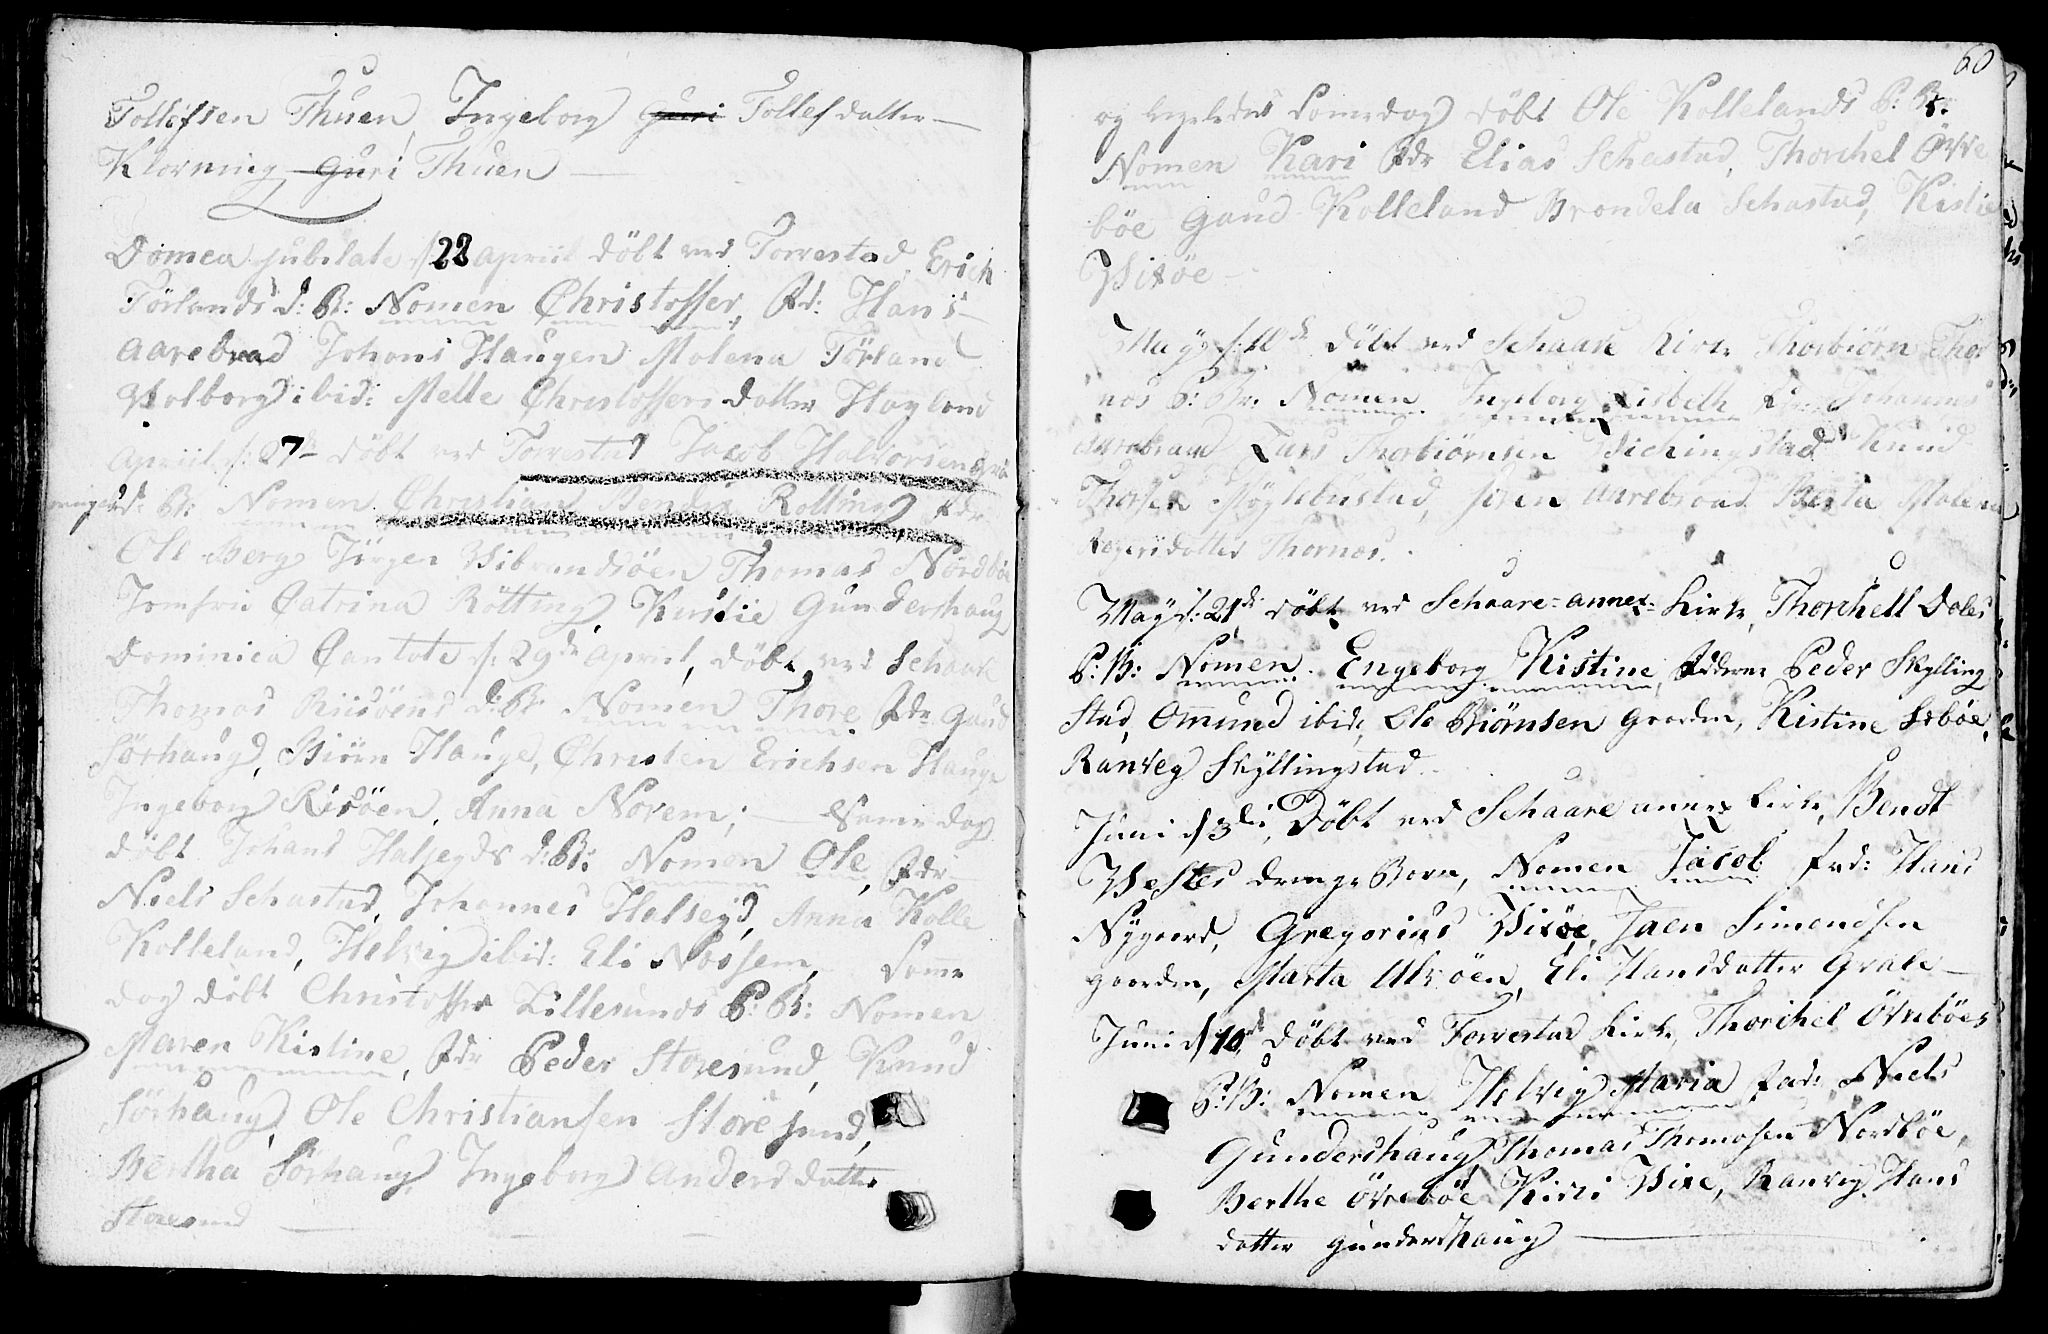 Tollefsen Thuen, Ingeborg Guri Tollefsdatter —
Klovning Guri Thuen —
Domca jubilate d 22 Apriil döbt ved Torvestad Erich
Förlands d: B: Nomen Christoffer, Fd: Hans
Aarebrad Johans Haugen Malena Förland
Wolborg ibid: Mette Christoffers datter Hagland
Apriil d: 27de döbt ved Torvestad Jacob Halvorsen
d: B: Nomen Christian Rötting Fdr
Ole Berg Jörgen Wibrandsöen Thomas Nordböe
Jomfru Catrina Rötting, Kistie Gundershaug
Dominica Cantate d: 29de April, döbt ved Schaare
Thomas Riisöens d: B: Nomen Thore Fdr Gaud
Sörhaug, Biörn Hauge, Christen Erichsen Hauge
Ingeborg Risöen, Anna Norem; — Samme dag
döbt Johans Halseyds d: B: Nomen Ole, Fdr
Niels Schastad, Johannes Halseyd, Anna Kolle
Kolleland, Helvig ibid: Eli Nossem, Samme
dag döbt Christoffer Lillesunds P: B: Nomen
Maren Kistine, Fdr Peder Storesund, Knud
Sörhaug, Ole Christiansen Storesund,
Bertha Sörhaug, Ingeborg Anders datter
Storesund —
60
og ligeledes samme dag döbt Ole Kollelands P: B:
Nomen Kari Fdr Elias Schastad, Thorchel Övre
böe Gaud Kolleland Brondela Schastad, Kistie
Visöe —
May d: döbt ved Schaare Kirke Thorbiörn Thor
nes P: B: Nomen Ingeborg Lisbeth Johannes
Aarebraad Lars Thorbiörnsen Vichingstad Knud
Thorsen Möglebustad, Siren Aarebroad Berta Malena
Aageridatter Thornes.
May d: 21de döbt ved Schaare annex Kirke, Thorchell Dales
P: B: Nomen Engeborg Kistine, Fdderne Peder Skylling
stad, Omund ibid, Ole Biörnsen gaarden, Kistine Seböe,
Ranveg Skyllingstad.
Juni d 3de, Döbt ved Schaare annex Kirke, Bendt
Vestes drenge Barn, Nomen Jacob Fad: Hans
Nygaard, Gregorius Visöe, Jaen Simensen
gaarden, Marta Ulvöen, Eli Hansdatter Grale —
Juni d 10de döbt ved Torvestad Kirke, Thorchel Övreböes
P: B: Nomen Helvig Maria Fad: Niels
Gundershaug Thomas Thomasen Nordböe,
Berthe Övreböe Kirsti Vixe, Ranvig Hans
datter gundershaug —